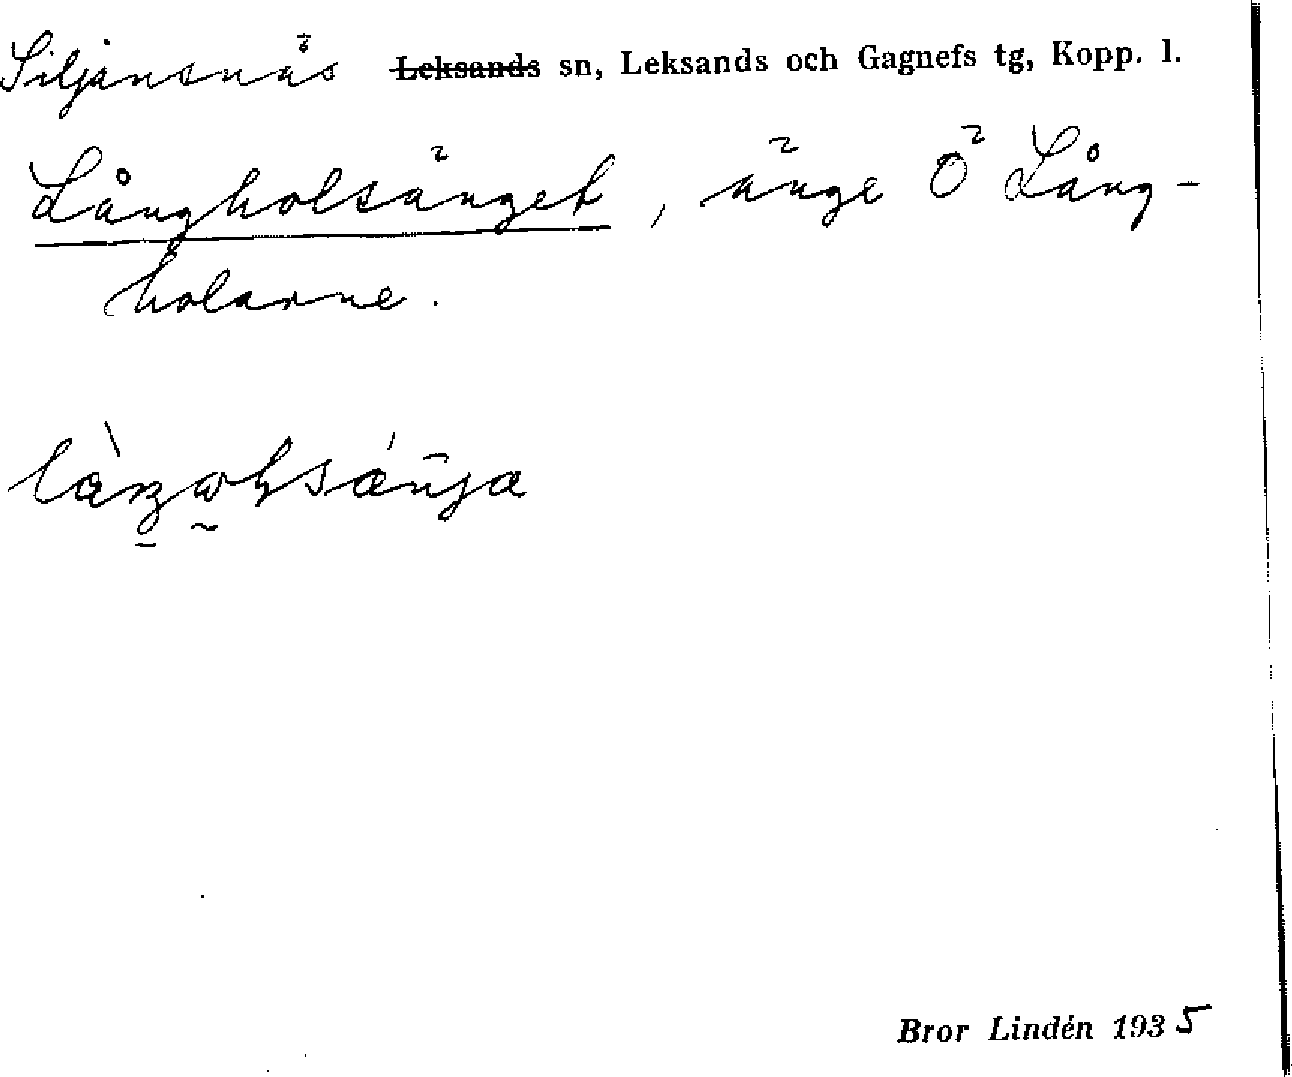 Siljansnäs Leksands sn, Leksands och Gagnefs tg, Kopp. l.
Långholsänget, änge Ö Lång-
holarne.
Bror Lindén 1935